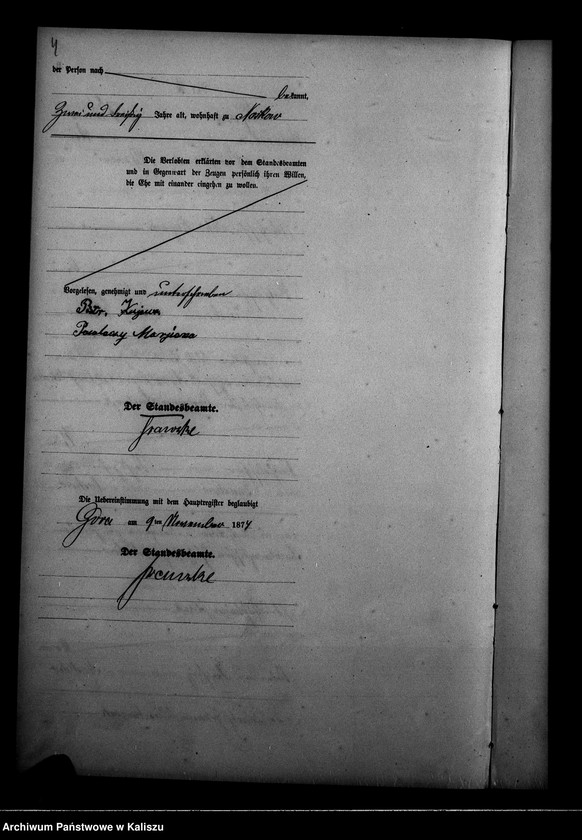 4
der Person nach
bekannt,
Zwei und dreißig Jahre alt, wohnhaft zu Noskow
Die Verlobten erklärten vor dem Standesbeamten
und in Gegenwart der Zeugen persönlich ihren Willen,
die Ehe mit einander eingehen zu wollen.
Vorgelesen, genehmigt und unterschrieben
Piotr
Maryanna
Der Standesbeamte.
Die Uebereinstimmung mit dem Hauptregister beglaubigt
Gora am 9ten November 1874
Der Standesbeamte.
Archiwum Państwowe w Kaliszu